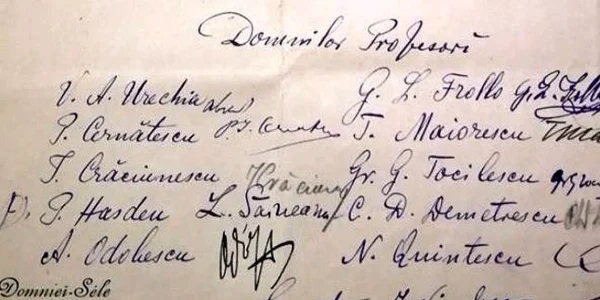 Domnilor Profesori
V. A. Urechia G. L. Frollo G. L. Frollo
P. Cernătescu T. Maiorescu
I. Crăciunescu Gr. G. Tocilescu
P. Hasdeu L. Șăineanu C. D. Demetrescu
A. Odobescu N. Quintescu
Domniei-Séle